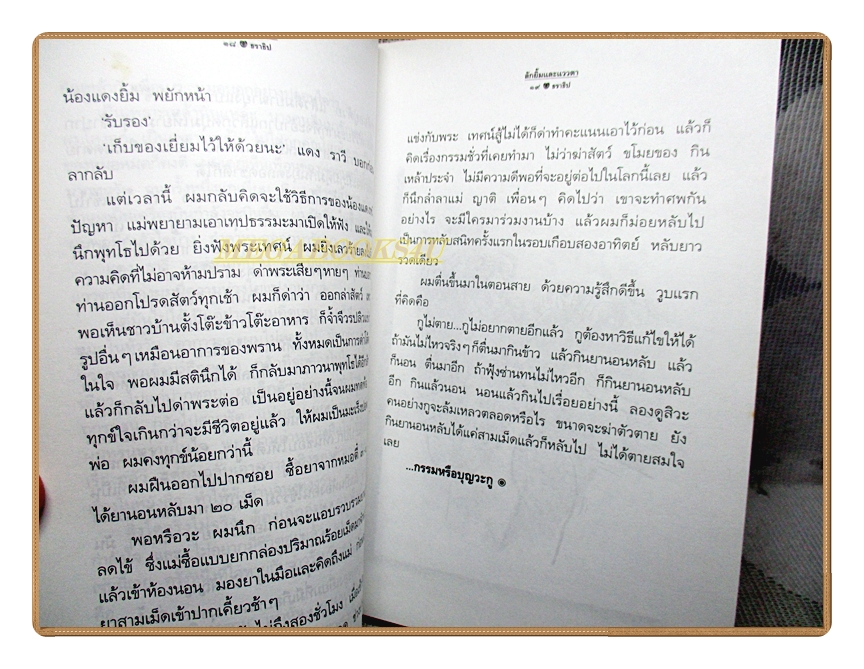 ๑๘ ธราธิป
น้องแดงยิ้ม พยักหน้า
'รับรอง'
'เก็บของเยี่ยมไว้ให้ด้วยนะ' แดง ราวี บอกก่อน
ลากลับ
แต่เวลานี้ ผมกลับคิดจะใช้วิธีการของน้องแดง
ปัญหา แม่พยายามเอาเทปธรรมะมาเปิดให้ฟัง และให้
นึกพุทโธไปด้วย ยิ่งฟังพระเทศน์ ผมยิ่งเลวร้ายลง
ความคิดที่ไม่อาจห้ามปราม ด่าพระเสียๆหายๆ ท่าน
ท่านออกโปรดสัตว์ทุกเช้า ผมก็ด่าว่า ออกล่าสัตว์
พอเห็นชาวบ้านตั้งโต๊ะข้าวโต๊ะอาหาร ก็จ้ำจีวรปลิว
รูปอื่นๆ เหมือนอาการของพราน ทั้งหมดเป็นการด่า
ในใจ พอผมมีสตินึกได้ ก็กลับมาภาวนาพุทโธได้อีก
แล้วก็กลับไปด่าพระต่อ เป็นอยู่อย่างนี้จนผม
ทุกข์ใจเกินกว่าจะมีชีวิตอยู่แล้ว ให้ผมเป็นมะเร็ง
พ่อ ผมคงทุกข์น้อยกว่านี้
ผมฝืนออกไปปากซอย ซื้อยาจากหมอตี๋
ได้ยานอนหลับมา ๒๐ เม็ด
พอหรือวะ ผมนึก ก่อนจะแอบรวบรวม
ลดไข้ ซึ่งแม่ซื้อแบบยกกล่องปริมาณร้อยเม็ด
แล้วเข้าห้องนอน มองยาในมือและคิดถึงแม่ ก่อน
ยาสามเม็ดเข้าปากเคี้ยวช้าๆ
ไม่ถึงสองชั่วโมง
MEGABOOKS411
ลักยิ้มและแววตา
๑๙ ธราธิป
แข่งกับพระ เทศน์สู้ไม่ได้ก็ด่าทำคะแนนเอาไว้ก่อน แล้วก็
คิดเรื่องกรรมชั่วที่เคยทำมา ไม่ว่าฆ่าสัตว์ ขโมยของ กิน
เหล้าประจำ ไม่มีความดีพอที่จะอยู่ต่อไปในโลกนี้เลย แล้ว
ก็นึกล่ำลาแม่ ญาติ เพื่อนๆ คิดไปว่า เขาจะทำศพกัน
อย่างไร จะมีใครมาร่วมงานบ้าง แล้วผมก็ม่อยหลับไป
เป็นการหลับสนิทครั้งแรกในรอบเกือบสองอาทิตย์ หลับยาว
รวดเดียว
ผมตื่นขึ้นมาในตอนสาย ด้วยความรู้สึกดีขึ้น วูบแรก
ที่คิดคือ
กูไม่ตาย...กูไม่อยากตายอีกแล้ว กูต้องหาวิธีแก้ไขให้ได้
ถ้ามันไม่ไหวจริงๆ ก็ตื่นมากินข้าว แล้วกินยานอนหลับ แล้ว
ก็นอน ตื่นมาอีก ถ้าฟุ้งซ่านทนไม่ไหวอีก ก็กินยานอนหลับ
อีก กินแล้วนอน นอนแล้วกินไปเรื่อยอย่างนี้ ลองดูสิวะ
คนอย่างกูจะล้มเหลวตลอดหรือไร ขนาดจะฆ่าตัวตาย ยัง
กินยานอนหลับได้แค่สามเม็ดแล้วก็หลับไป ไม่ได้ตายสมใจ
เลย
...กรรมหรือบุญวะกู